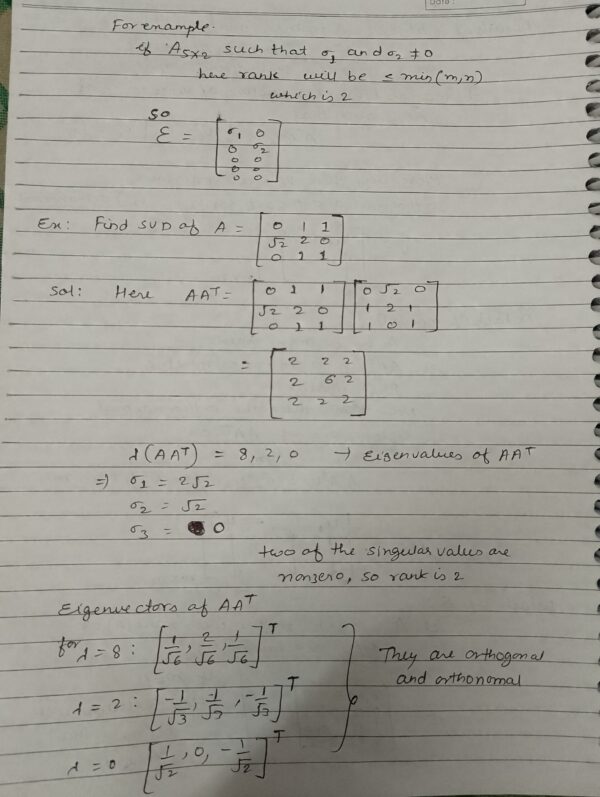 Date:
For example.
if A5×2 such that σ1 and σ2 ≠ 0
here rank will be ≤ min(m,n)
which is 2
so
Ɛ = [σ1 0
0 σ2
0 0
0 0
0 0]
Ex: Find SVD of A = [0 1 1
√2 2 0
0 1 1]
Sol: Here AAᵀ = [0 1 1 [0 √2 0
√2 2 0 1 2 1
0 1 1] 1 0 1]
= [2 2 2
2 6 2
2 2 2]
λ(AAᵀ) = 8, 2, 0 → Eigenvalues of AAᵀ
⇒ σ1 = 2√2
σ2 = √2
σ3 = 0
two of the singular values are
nonzero, so rank is 2
Eigenvectors of AAᵀ
for λ = 8 : [1/√6, 2/√6, 1/√6]ᵀ
They are orthogonal
and orthonomal
λ = 2 : [-1/√3, 1/√3, -1/√3]ᵀ
λ = 0 [1/√2, 0, -1/√2]ᵀ